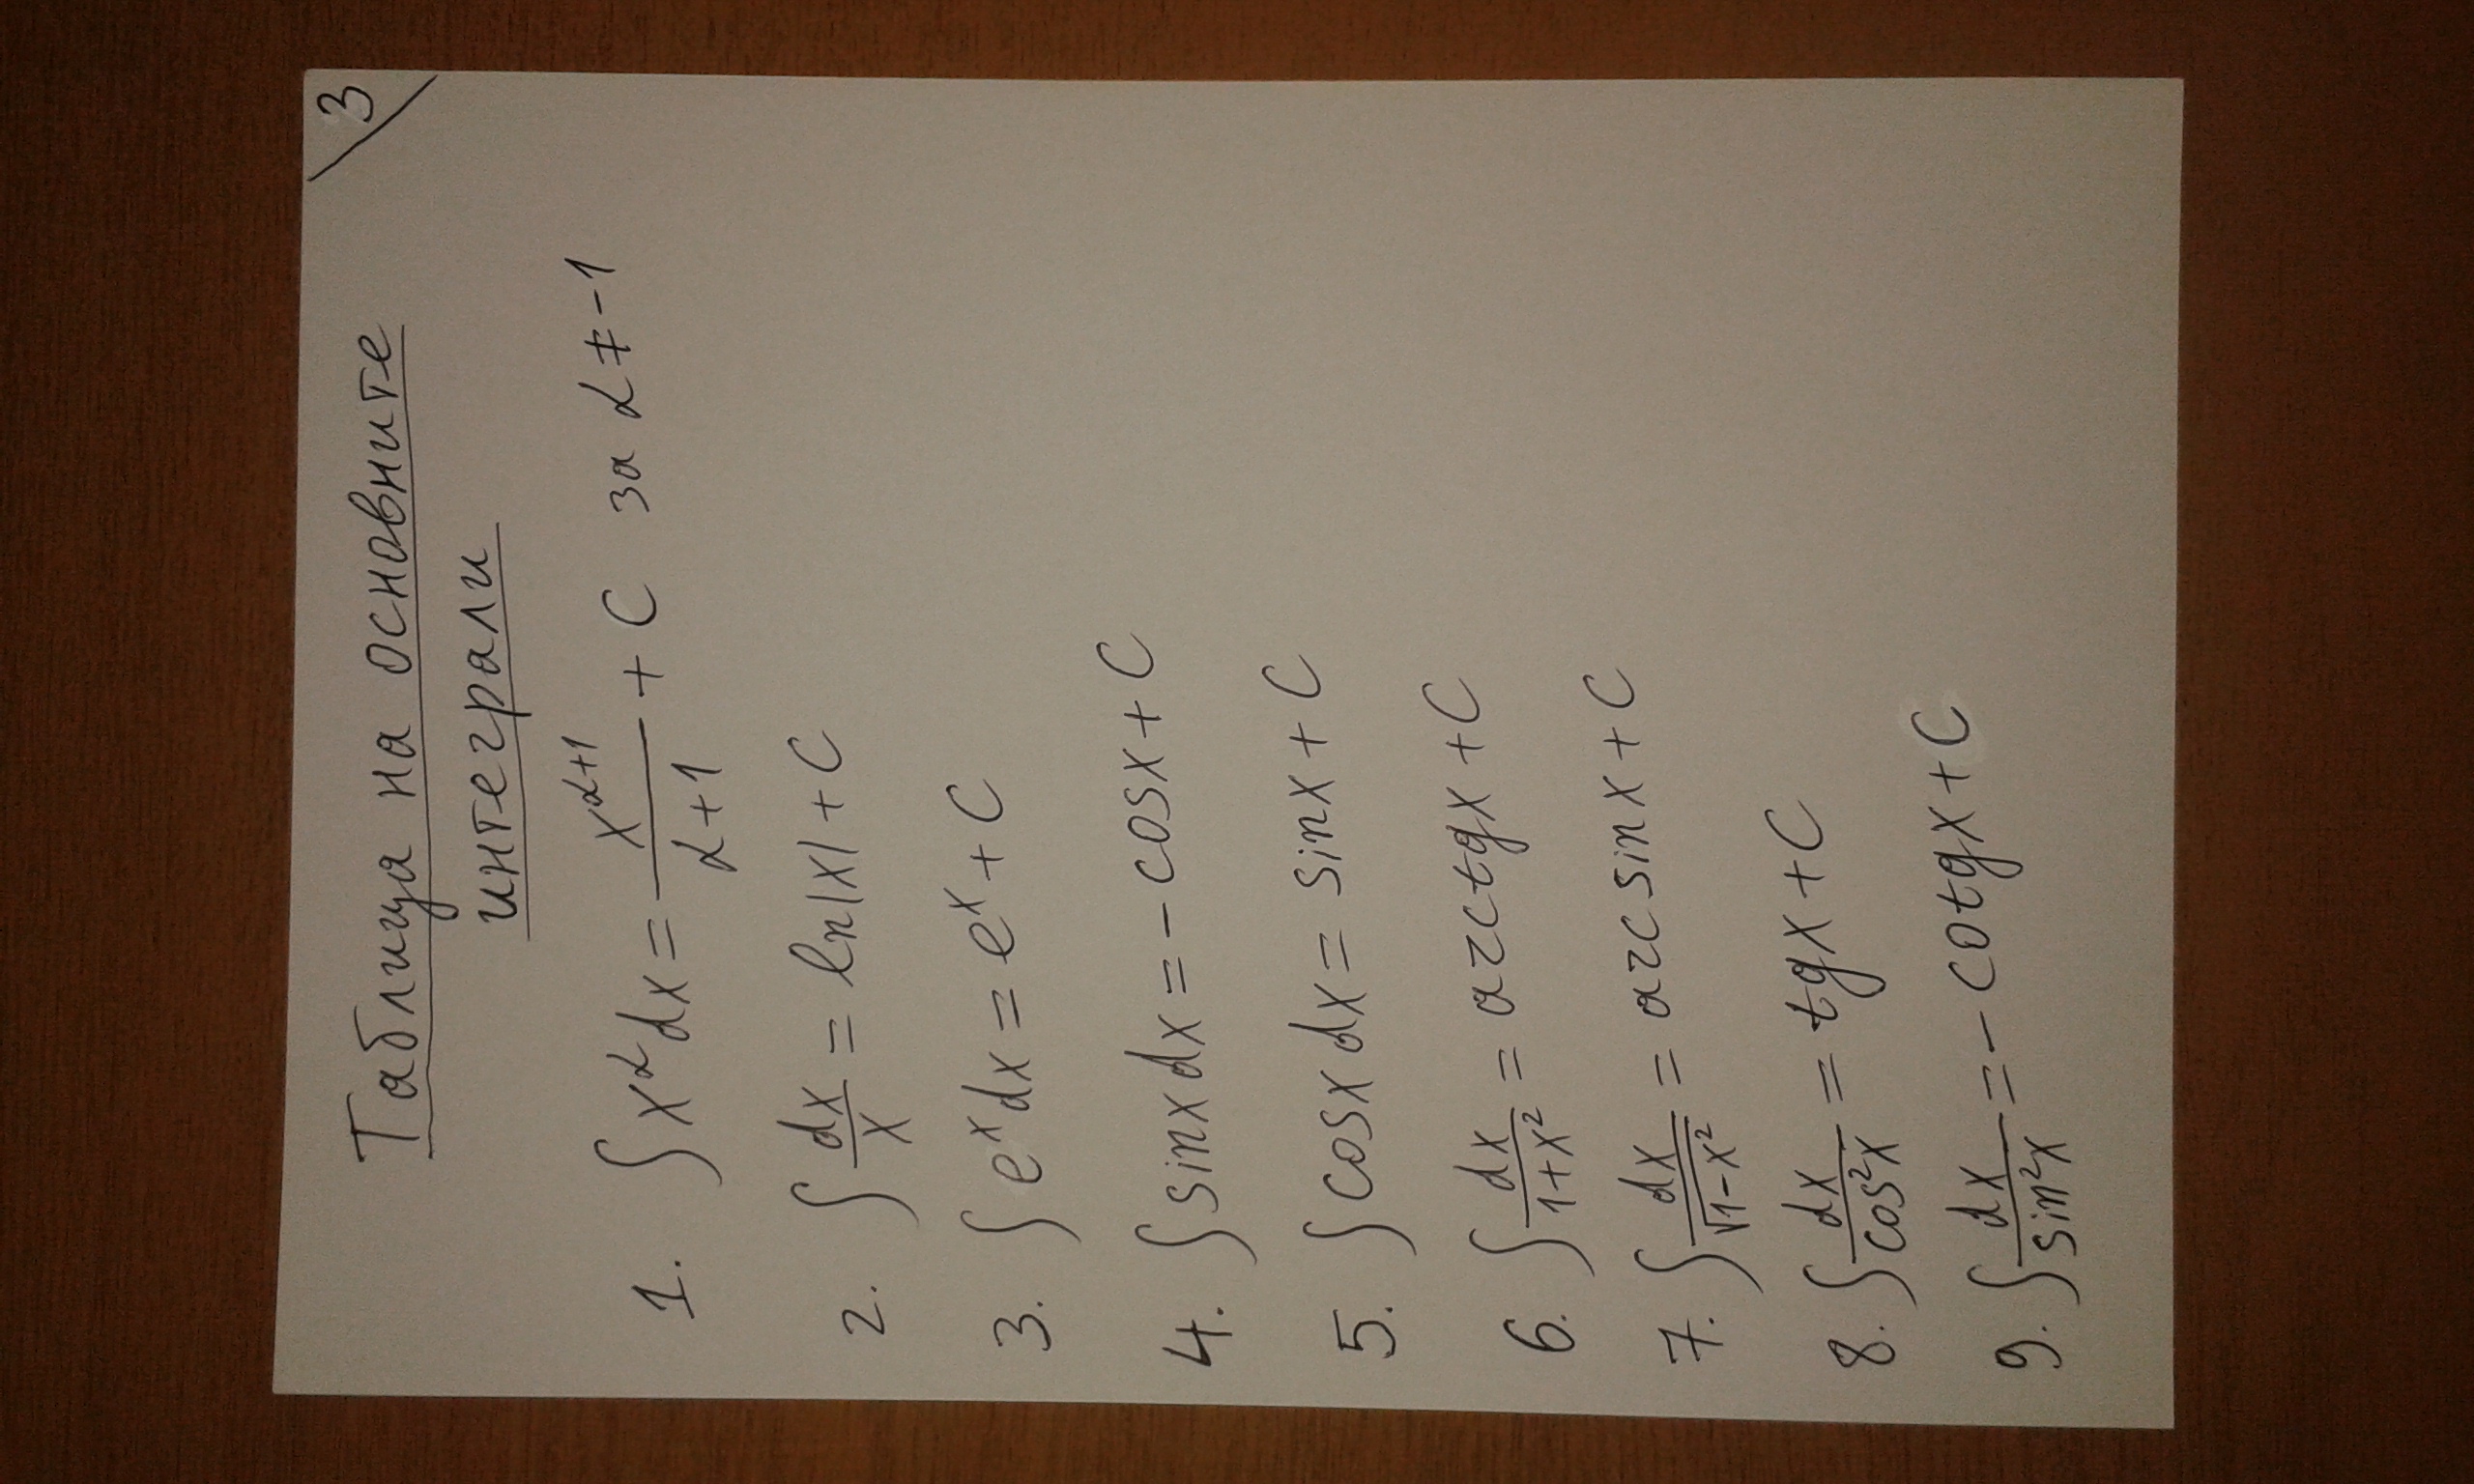 3
Таблица на основните
интеграли
1. ∫x^α dx = x^(α+1)/(α+1) + C за α ≠ -1
2. ∫dx/x = ln|x| + C
3. ∫e^x dx = e^x + C
4. ∫sinx dx = -cosx + C
5. ∫cosx dx = sinx + C
6. ∫dx/(1+x²) = arctgx + C
7. ∫dx/√(1-x²) = arcsinx + C
8. ∫dx/cos²x = tgx + C
9. ∫dx/sin²x = -cotgx + C